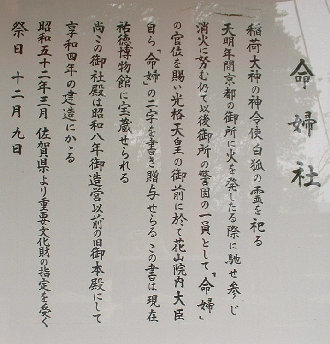 命婦社
稲荷大神の神令使白狐の霊を祀る
天明年間京都の御所に火を発したる際に馳せ参じ
消火に努む仍て以後御所の警固の一員として〝命婦〟
の官位を賜い光格天皇の御前に於て花山院内大臣
自ら〝命婦〟の二字を書き贈与せらる この書は現在
祐徳博物館に宝蔵せられる
尚この御社殿は昭和八年御造営以前の旧御本殿にして
享和四年の建造にかゝる
昭和五十二年三月 佐賀県より重要文化財の指定を受く
祭日 十二月 九日